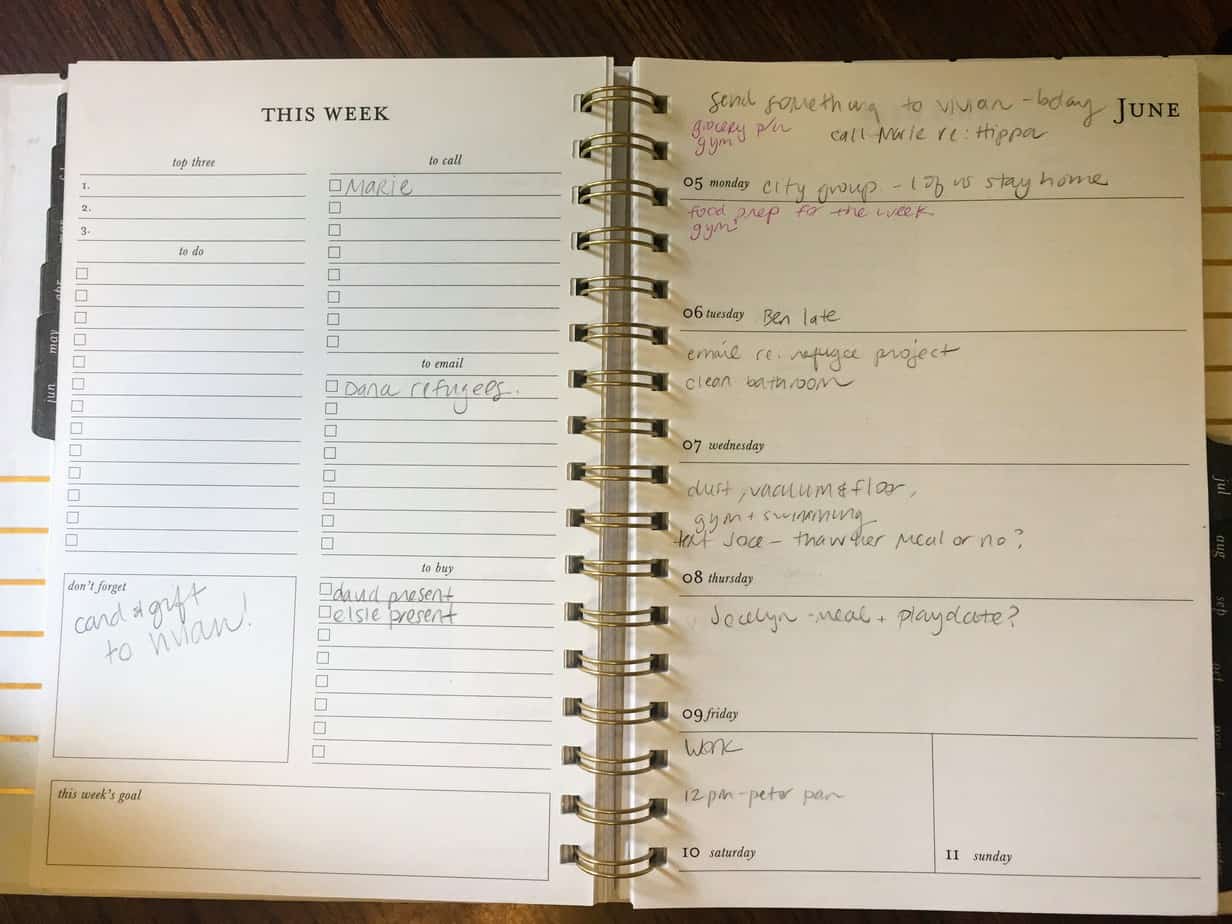 THIS WEEK
top three
1.
2.
3.
to do
to call
Marie
to email
Dana refugees.
to buy
david present
elsie present
don't forget
card & gift
to vivian!
this week's goal
send something to vivian - bday
JUNE
grocery p/u
gym
call Marie re: Hippa
05 monday city group - 1 of us stay home
food prep for the week
gym
06 tuesday Ben late
email re. refugee project
clean bathroom
07 wednesday
dust, vacuum & floor,
gym + swimming
text Joce - thaw her meal or no?
08 thursday
Jocelyn - meal + playdate?
09 friday
Work
12 pm - peter pan
10 saturday
11 sunday
apr
may
jun
jul
aug
sep
oct